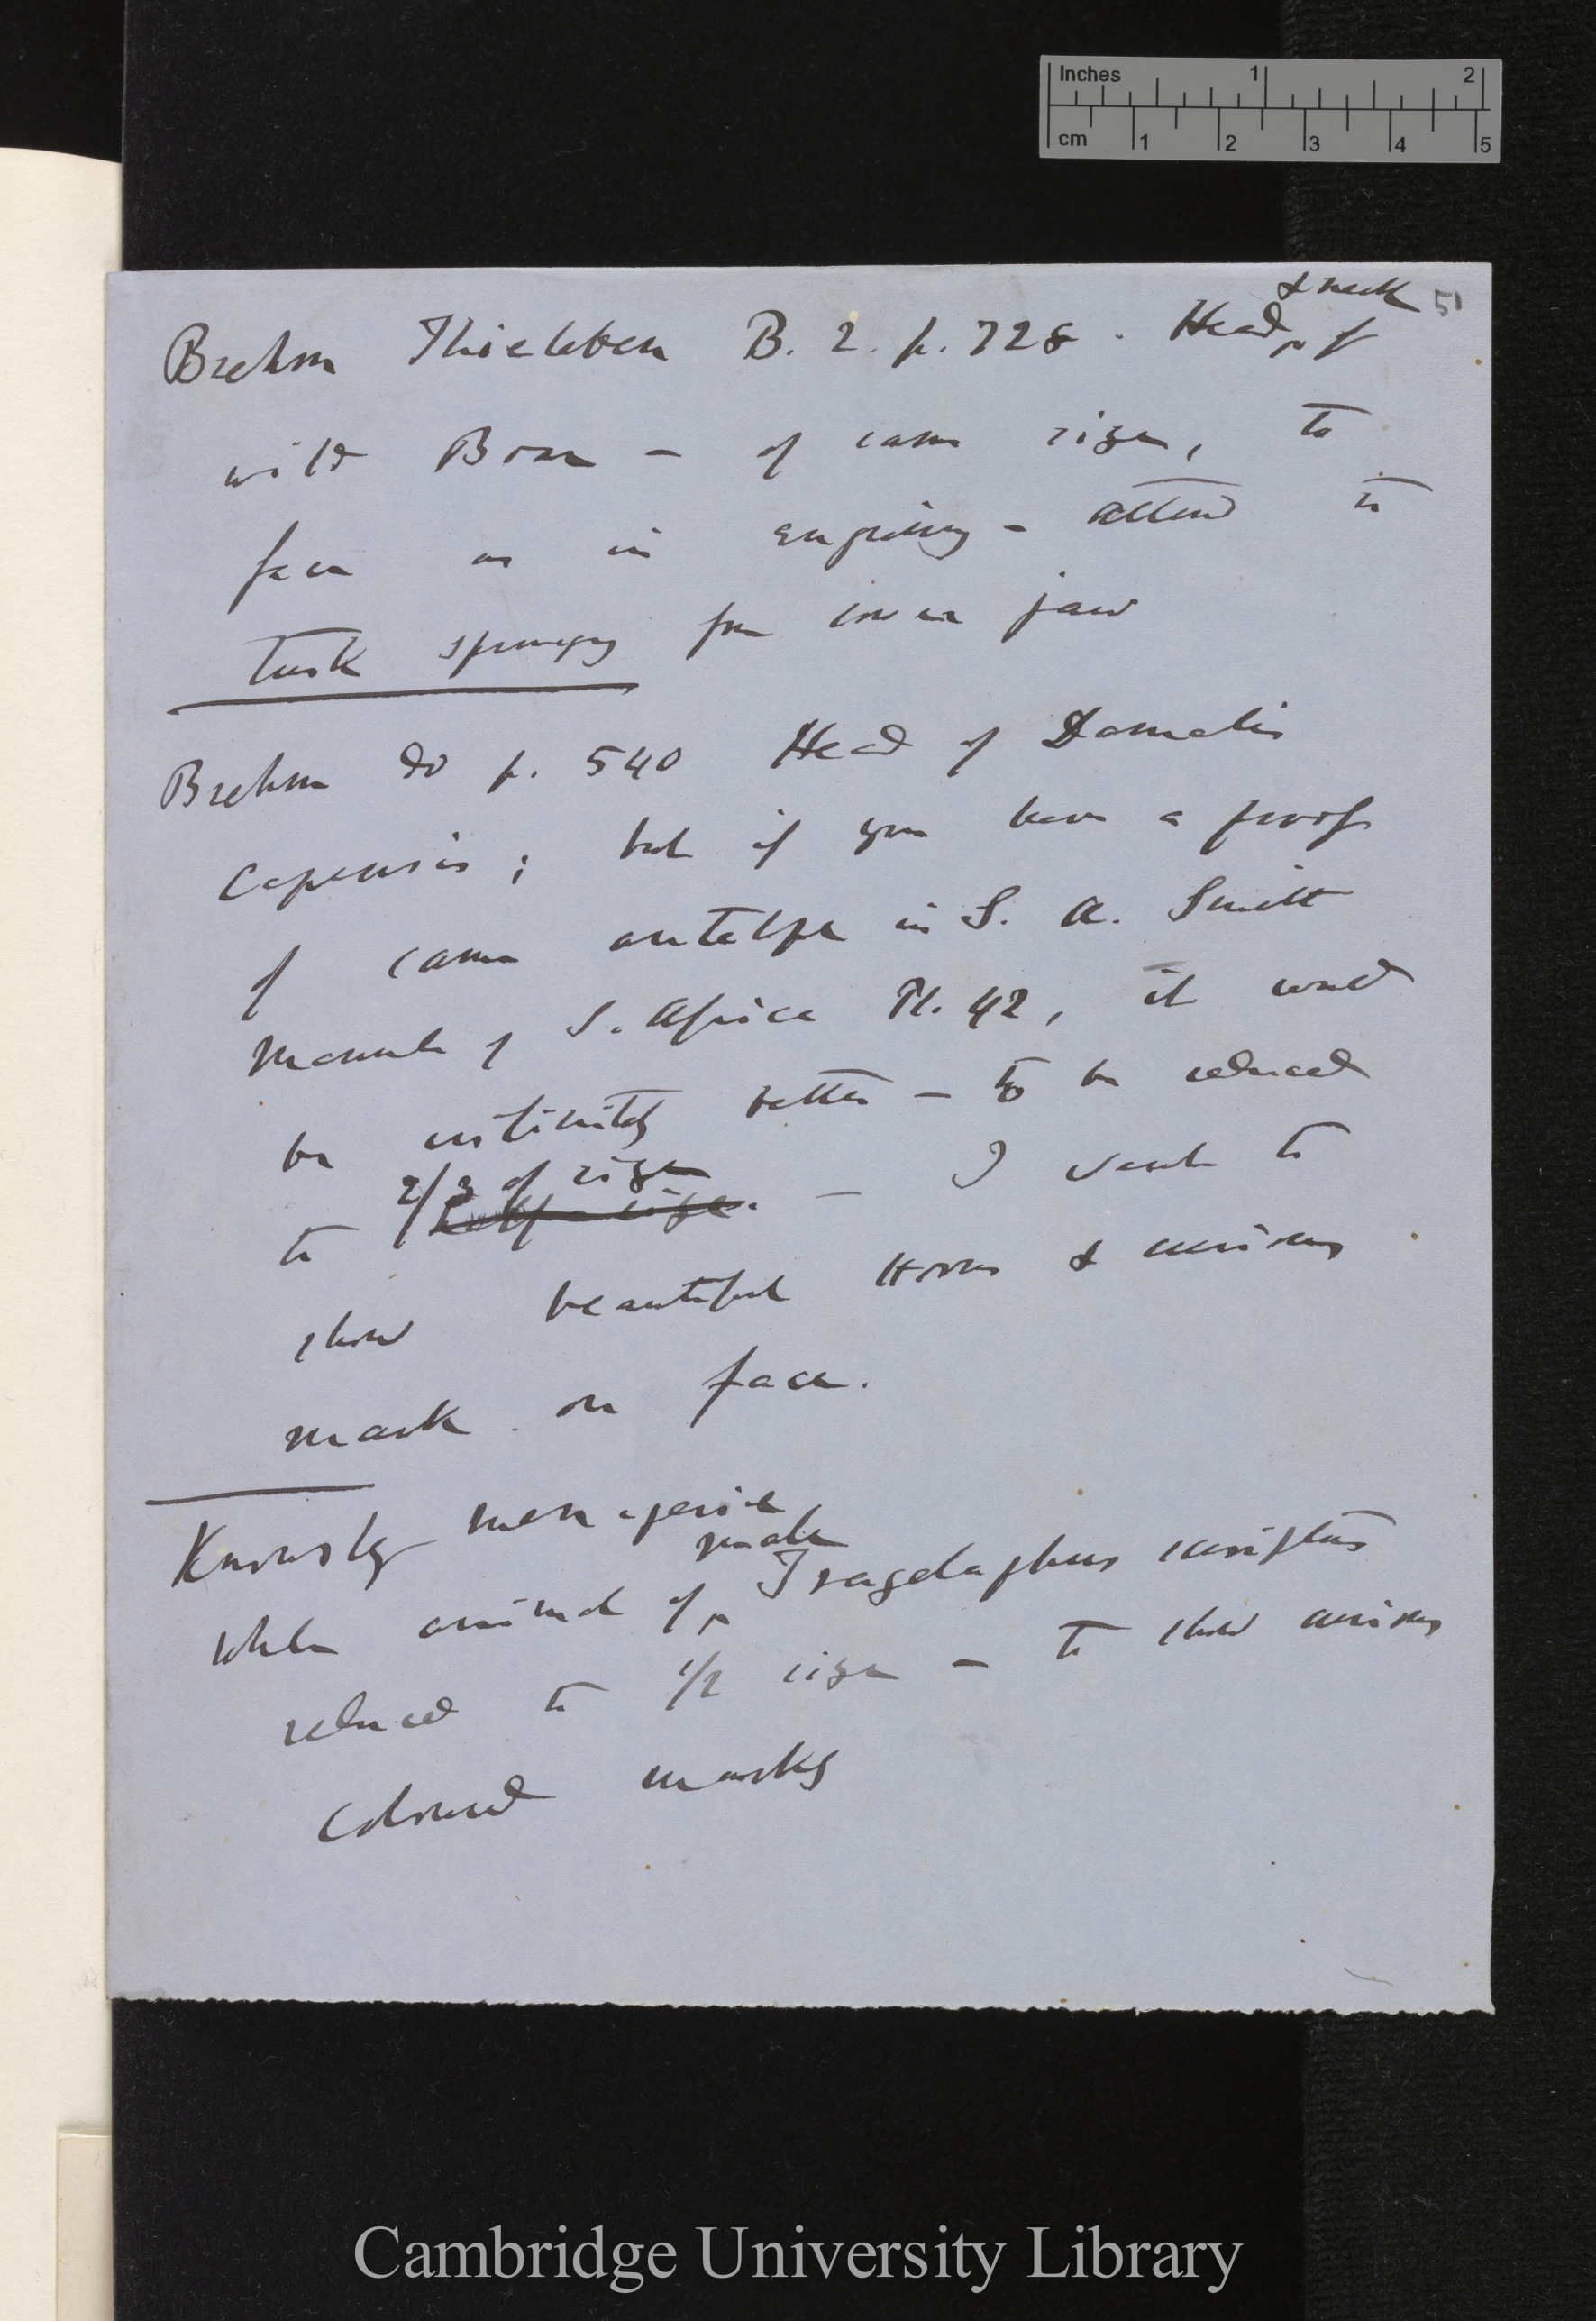 Inches 1 2
cm 1 2 3 4 5
& neck 51
Brehm Thierleben B. 2. p. 728. Head of
wild Boar – of same size, to
face as in engraving – attend to
tusk springing from lower jaw
Brehm do p. 540 Head of Damalis
Capensis; but if you have a proof
of same antelope in S. A. Smith
Mamals of S. Africa Pl. 42, it would
be infinitely better – to be reduced
2/3 of size
to half size. – I want to
show beautiful Horns & curious
mark on face.
Knowsley menagerie
male
whole animal of Tragelaphus scriptus
reduced to 1/2 size – to show curious
coloured marks
Cambridge University Library